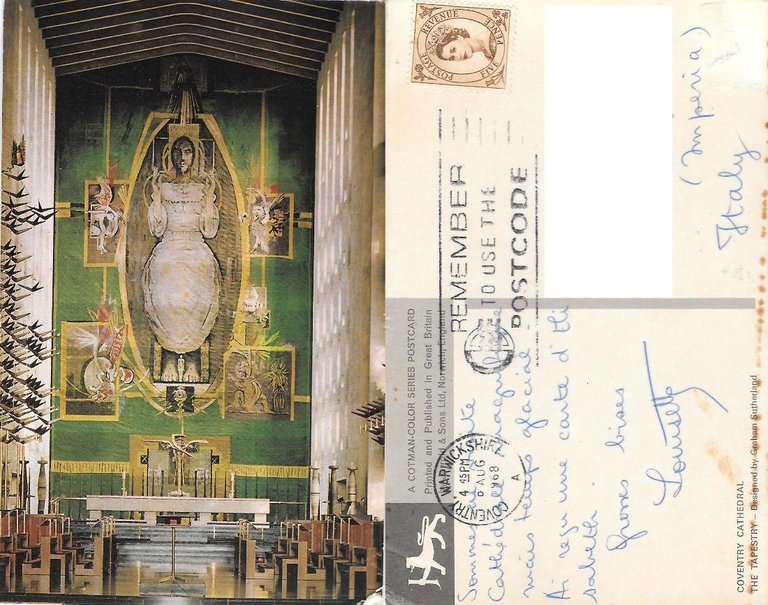 POSTAGE REVENUE
FIVE PENCE
REMEMBER
TO USE THE
POSTCODE
COVENTRY WARWICKSHIRE
4 15PM
6 AUG
1968
A
(Imperia)
Italy
A COTMAN-COLOR SERIES POSTCARD
Printed and Published in Great Britain
& Sons Ltd, Norwich, England
mais temps glacial -
Ai reçu une carte d'Eli
sabeth.
Grosses bises
COVENTRY CATHEDRAL
THE TAPESTRY – Designed by Graham Sutherland